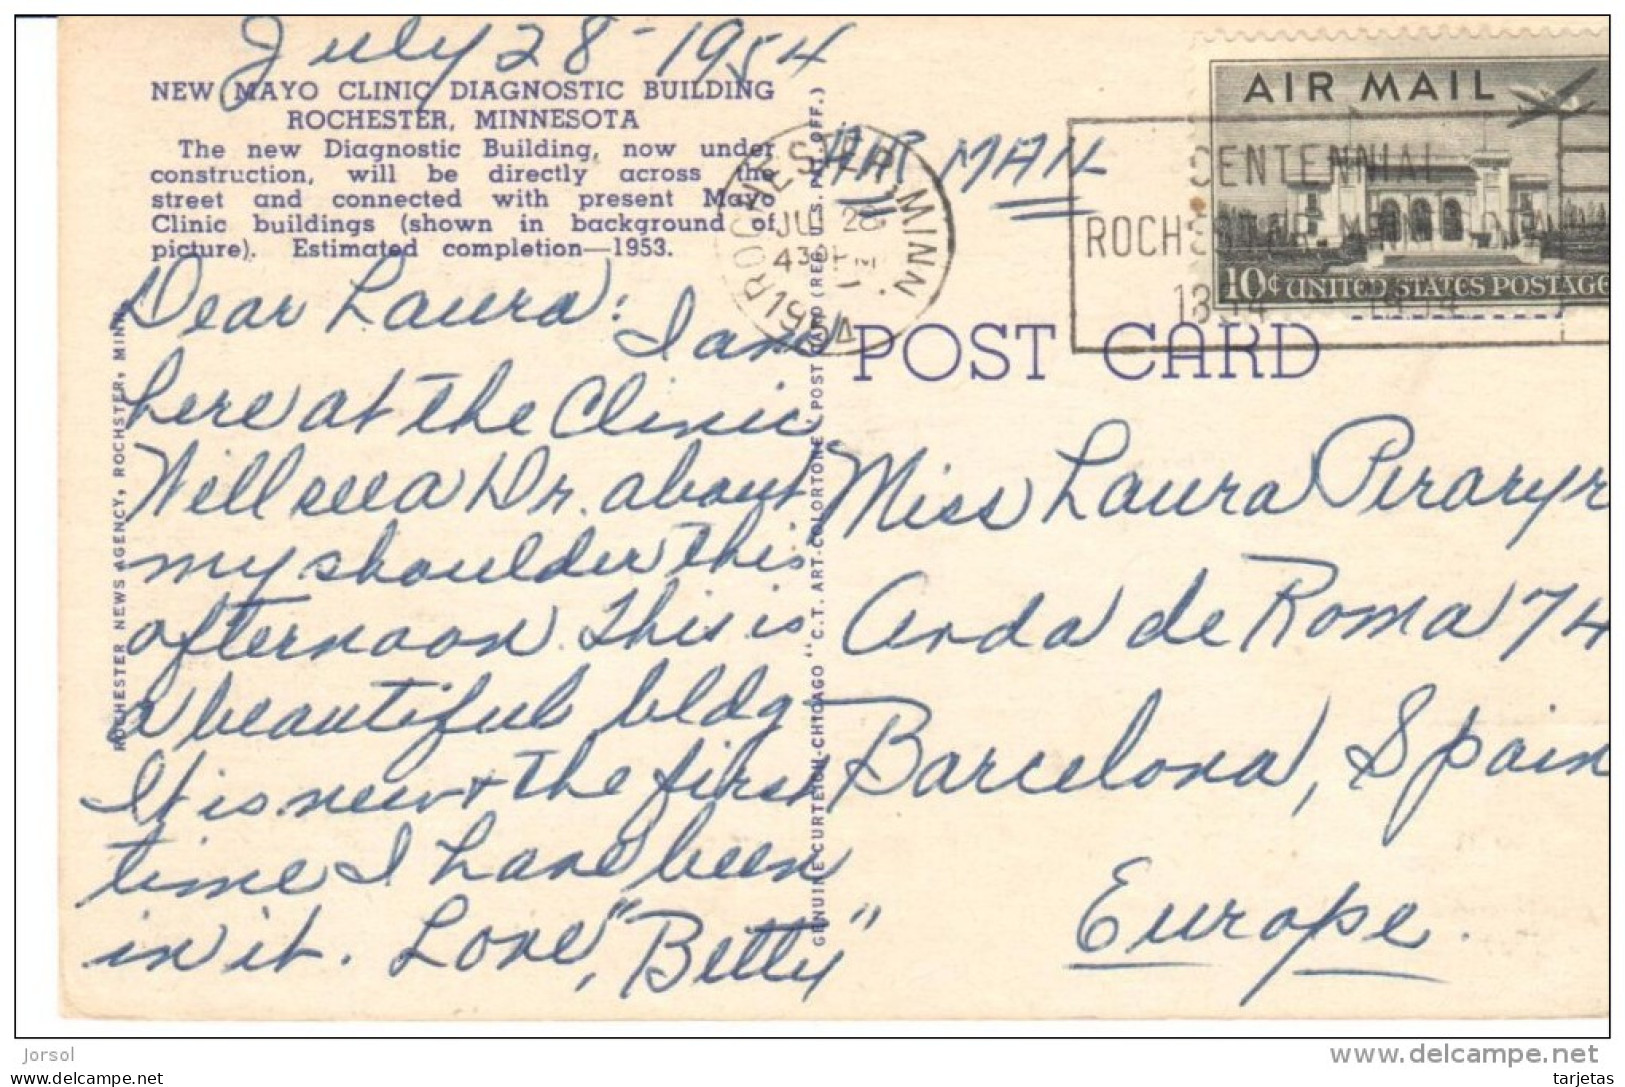 July 28 - 1954
NEW MAYO CLINIC DIAGNOSTIC BUILDING
ROCHESTER, MINNESOTA
The new Diagnostic Building, now under
construction, will be directly across the
street and connected with present Mayo
Clinic buildings (shown in background of
picture). Estimated completion—1953.
Dear Laura:
I am
here at the Clinic
Will see a Dr. about
my shoulder this
afternoon. This is
a beautiful bldg
It is new & the first
time I have been
in it. Love, "Betty"
ROCHESTER NEWS AGENCY, ROCHSTER, MINN.
GENUINE CURTEICH-CHICAGO "C.T. ART-COLORTONE" POST CARD (REG. U.S. PAT. OFF.)
ROCHESTER, MINN.
JUL 28
430 PM
1954
AIR MAIL
CENTENNIAL
ROCHESTER MINNESOTA
1854 1954
AIR MAIL
10¢ UNITED STATES POSTAGE
POST CARD
Miss Laura
Avda de Roma 74
Barcelona, Spain
Europe.
Jorsol
www.delcampe.net
tarjetas